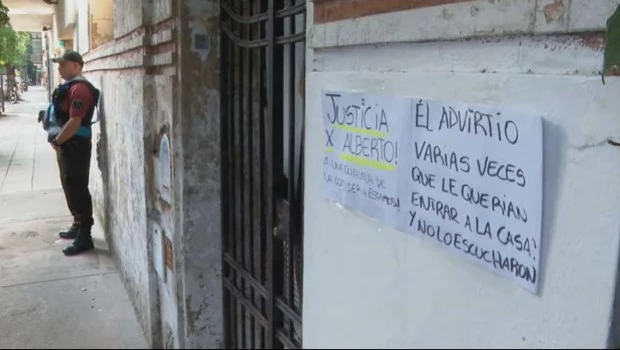 JUSTICIA
X ALBERTO!
A UNA CUADRA DE
LA
ÉL ADVIRTIO
VARIAS VECES
QUE LE QUERIAN
ENTRAR A LA CASA!
Y NO LO ESCUCHARON